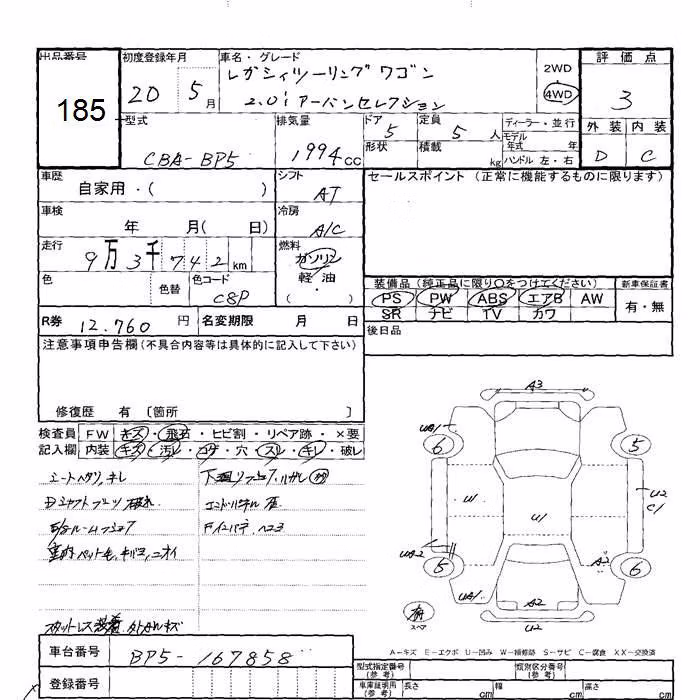 出品番号
185
初度登録年月
20 5月
車名・グレード
レガシィツーリングワゴン
2.0i アーバンセレクション
2WD
4WD
評価点
3
外装 内装
D C
型式
CBA-BP5
排気量
1994cc
ドア
5
形状
定員
5人
積載
kg
ディーラー・並行
モデル年式 年
ハンドル 左・右
車歴
自家用・( )
シフト
AT
セールスポイント (正常に機能するものに限ります)
車検
年 月( 日)
冷房
A/C
走行
9万3千742km
燃料
ガソリン
軽・油
( )
色
色替
色コード
C8P
装備品(純正品に限り○をつけてください)
PS PW ABS エアB AW
SR ナビ TV カワ
新車保証書
有・無
R券 12,760円
名変期限 月 日
後日品
注意事項申告欄(不具合内容等は具体的に記入して下さい)
修復歴 有 〔箇所 〕
検査員記入欄
FW キズ・飛石・ヒビ割・リペア跡・×要
内装 キズ・汚レ・コゲ・穴・スレ・キレ・破レ
シートヘタリ、キレ
Dシャフトブーツ破れ
室内ペット毛、キバミ、ニオイ
エンドパネル
スタットレス装着
車台番号
BP5-167858
登録番号
A3
UA1
6
5
U1
U1
U2
C1
UA2
5
A2
6
UA1
A2
U2
有
スペア
A-キズ E-エクボ U-凹み W-補修跡 S-サビ C-腐食 XX-交換済
型式指定番号(参考)
類別区分番号(参考)
車庫証明用(参考)
長さ cm 幅 cm 高さ cm